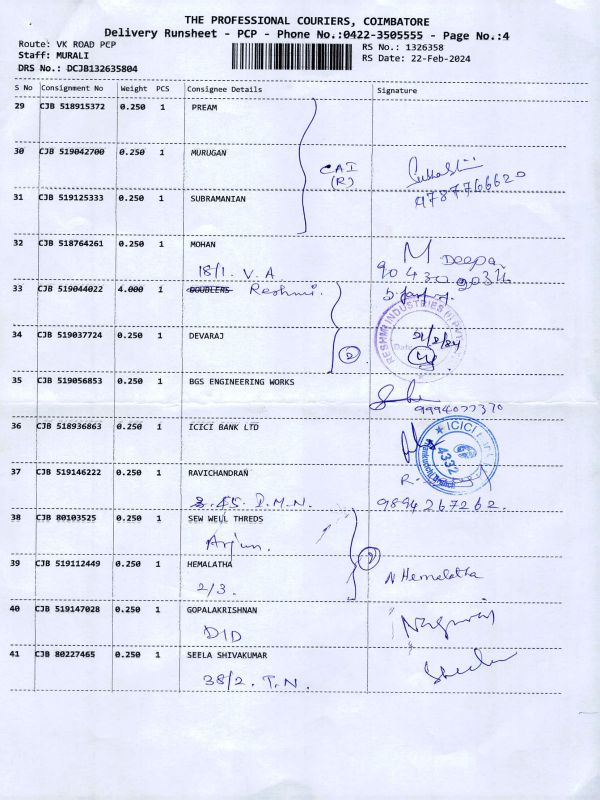 THE PROFESSIONAL COURIERS, COIMBATORE
Delivery Runsheet - PCP - Phone No.:0422-3505555 - Page No.:4
Route: VK ROAD PCP
RS No.: 1326358
Staff: MURALI
RS Date: 22-Feb-2024
DRS No.: DCJB132635804
S No Consignment No Weight PCS Consignee Details Signature
29 CJB 518915372 0.250 1 PREAM
30 CJB 519042700 0.250 1 MURUGAN
CAI
(R)
9787766620
31 CJB 519125333 0.250 1 SUBRAMANIAN
32 CJB 518764261 0.250 1 MOHAN
M Deepa
18/1. V.A
33 CJB 519044022 4.000 1 DOUBLERS Reshmi.
RESHMI INDUSTRIES
34 CJB 519037724 0.250 1 DEVARAJ
Date
35 CJB 519056853 0.250 1 BGS ENGINEERING WORKS
9994077370
36 CJB 518936863 0.250 1 ICICI BANK LTD
ICICI
4332
Branch
37 CJB 519146222 0.250 1 RAVICHANDRAN
R.
D.M.N.
9894267262.
38 CJB 80103525 0.250 1 SEW WELL THREDS
Arjun.
39 CJB 519112449 0.250 1 HEMALATHA
N Hemalatha
2/3.
40 CJB 519147028 0.250 1 GOPALAKRISHNAN
DID
Nagaraj
41 CJB 80227465 0.250 1 SEELA SHIVAKUMAR
Sheela
38/2. T.N.